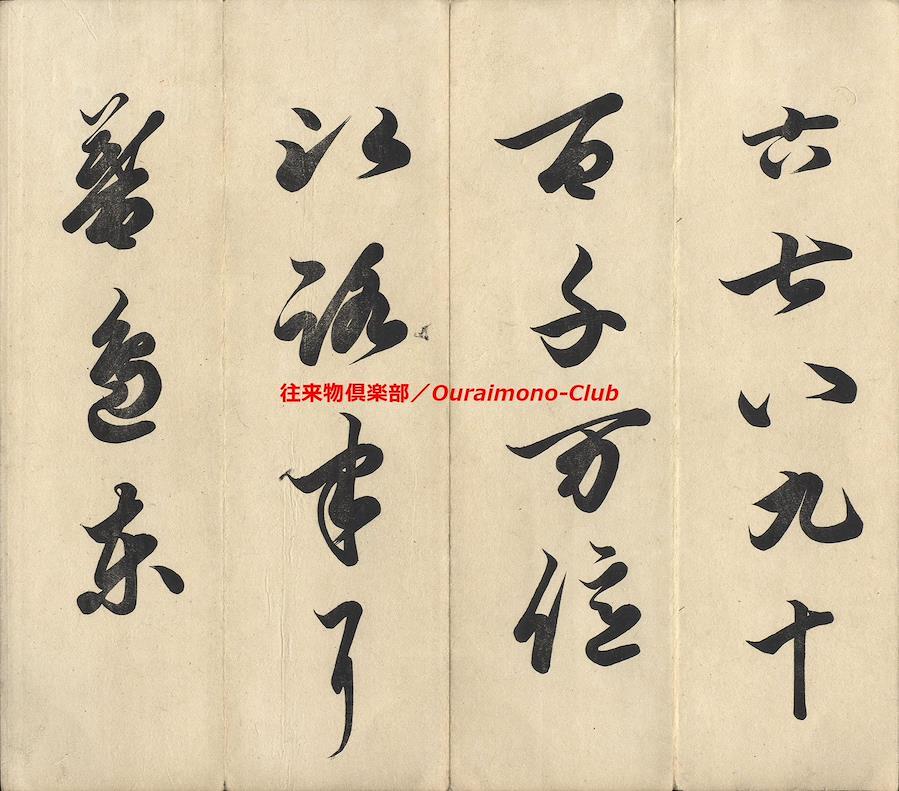 六七八九十
百千万億
以路半耳
東
往来物倶楽部／Ouraimono-Club